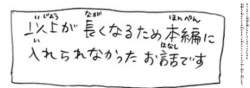 以上が長くなるため本編に
入れられなかったお話です